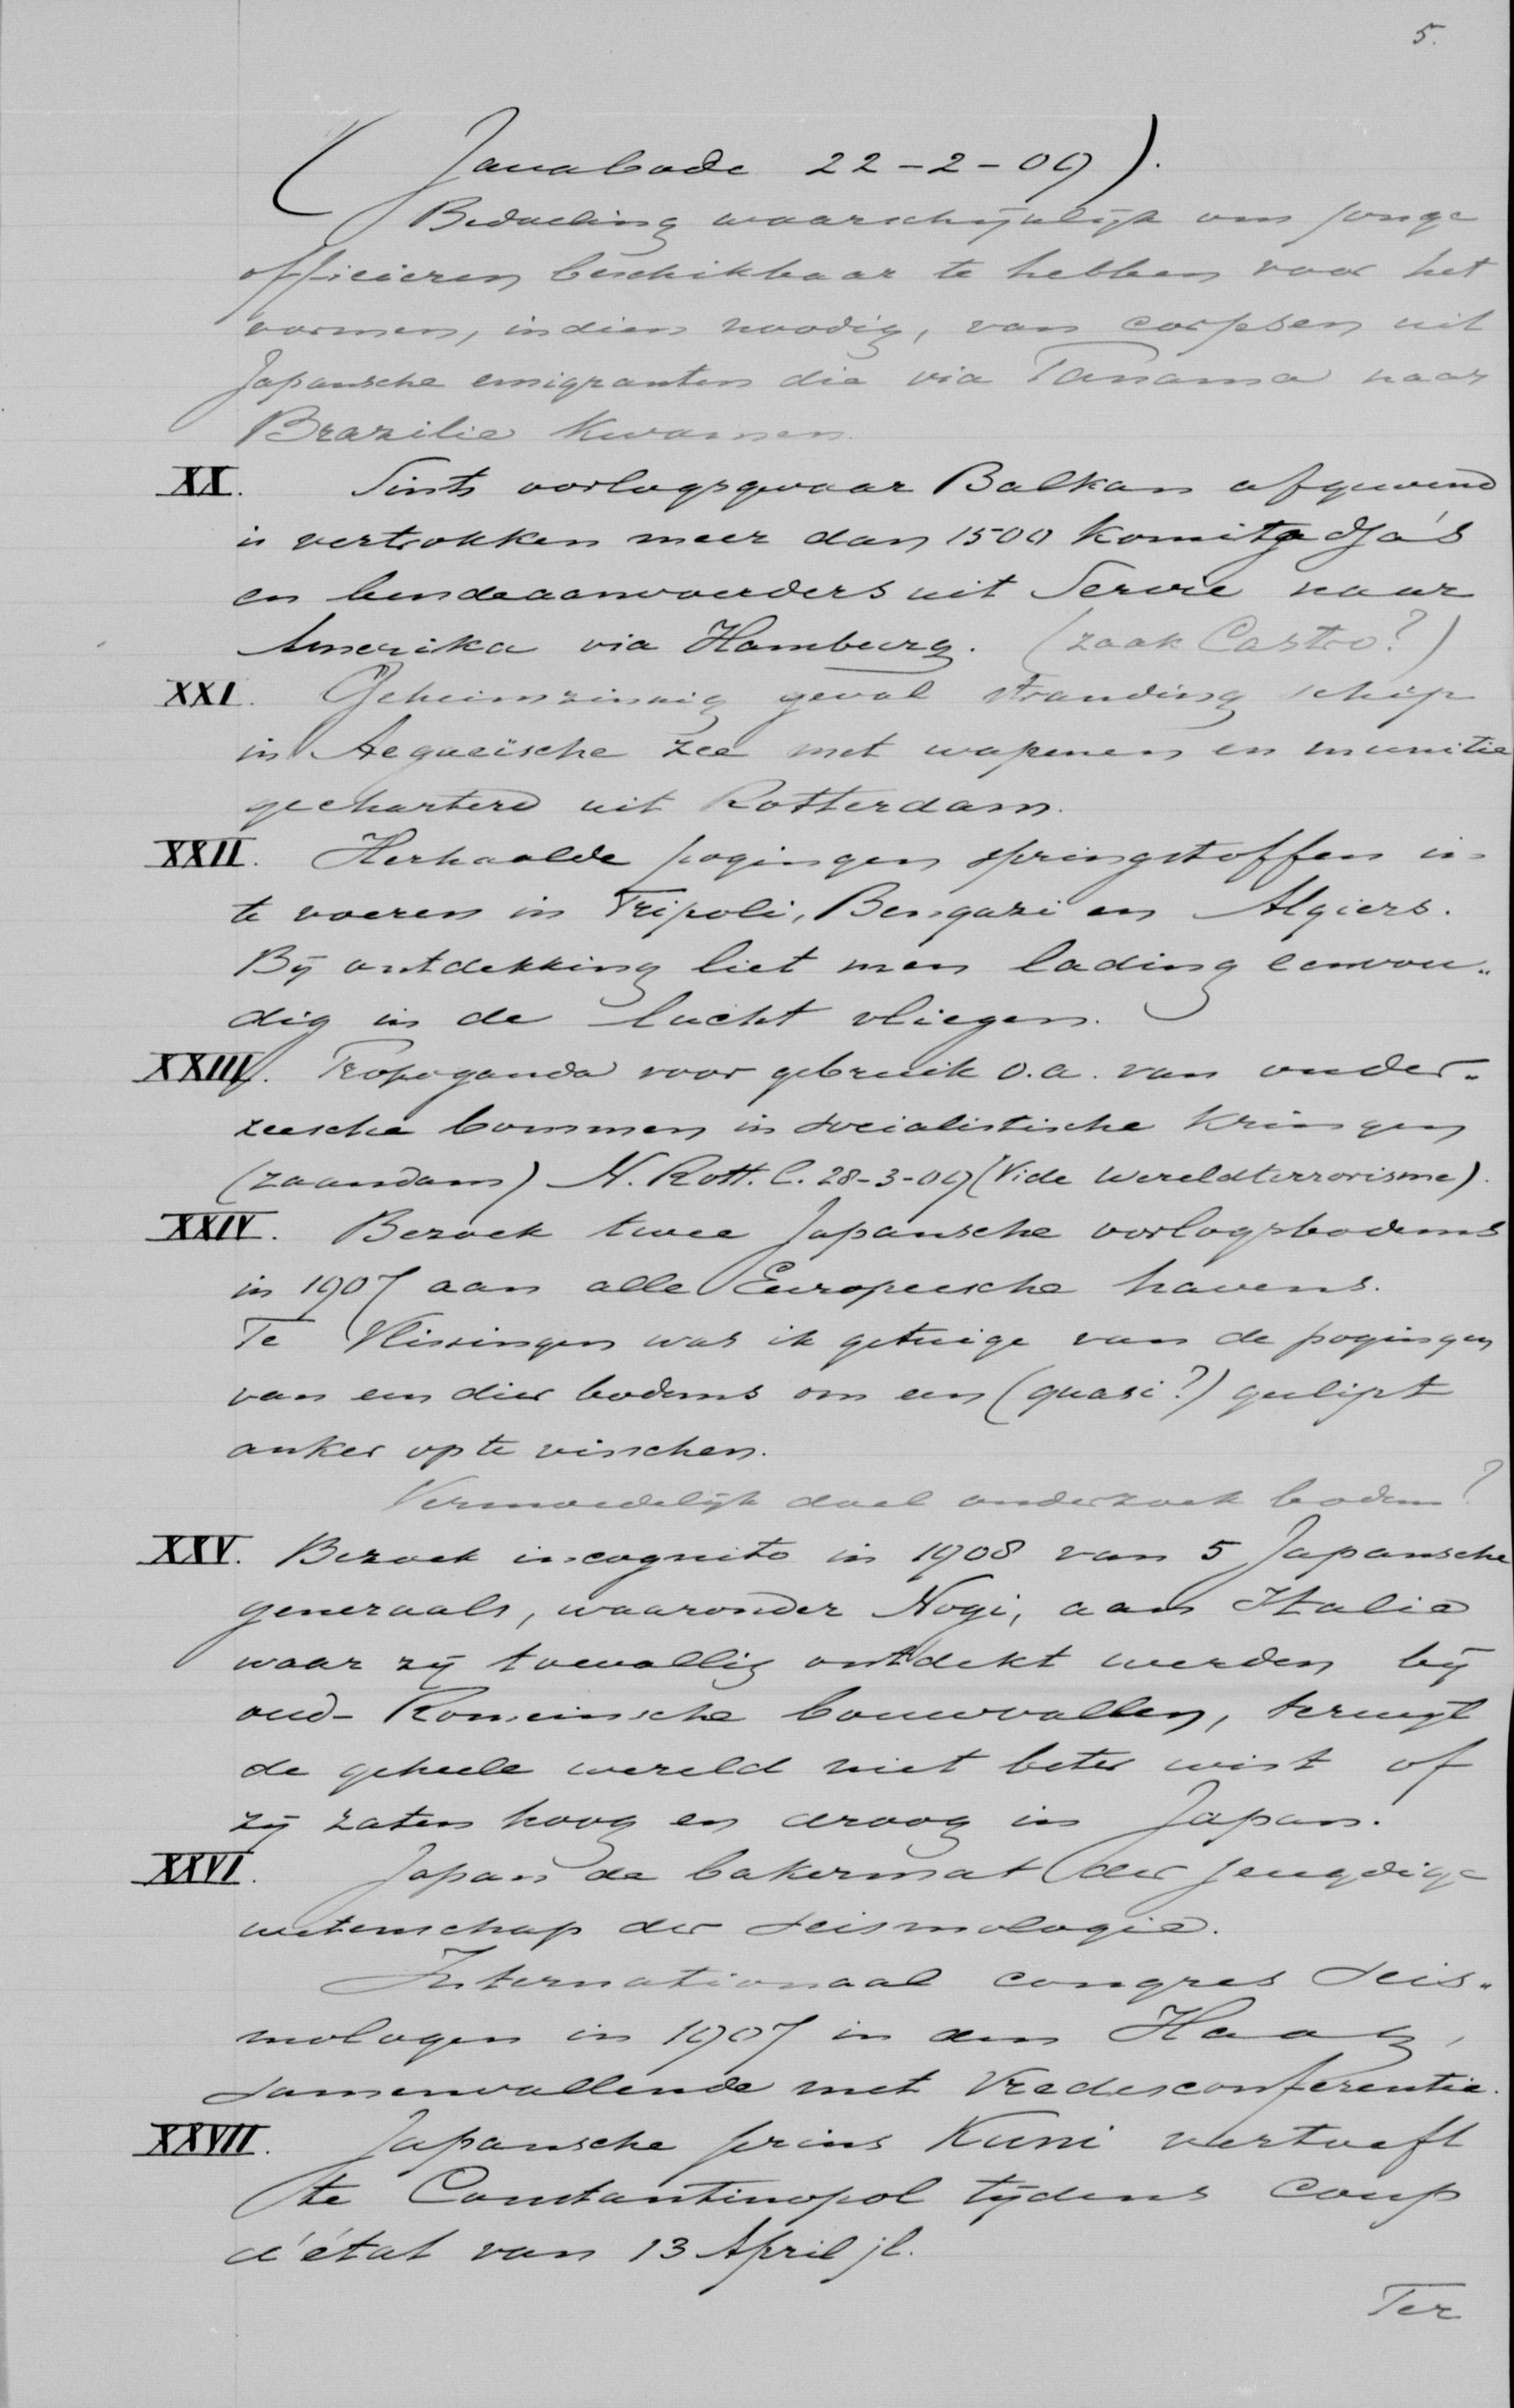 5.
(Javabode 22-2-09).
Bedoeling waarschijnlijk om jonge
officieren beschikbaar te hebben voor het
vormen, indien noodig, van corpsen uit
Japansche emigranten die via Panama naar
Brazilie kwamen.
XX. Sints oorlogsgevaar Balkan afgewend
is vertrokken meer dan 1500 Komitadja's
en bendeaanvoerders uit Servie naar
Amerika via Hamburg. (zaak Castro?)
XXI. Geheimzinnig geval stranding schip
in Aegaeïsche zee met wapenen en munitie
gecharterd uit Rotterdam.
XXII. Herhaalde pogingen springstoffen in
te voeren in Tripoli, Bengazi en Algiers.
Bij ontdekking liet men lading eenvou„
dig in de lucht vliegen.
XXIII. Propoganda voor gebruik o.a. van onder„
zeesche bommen in socialistische kringen
(Zaandam) N. Rott. C. 28-3-09 (Vide Wereldterrorisme).
XXIV. Bezoek twee Japansche oorlogsbodems
in 1907 aan alle Europeesche havens.
Te Vlissingen was ik getuige van de pogingen
van een dier bodems om een (quasi?) geslipt
anker op te visschen.
Vermoedelijk doel onderzoek bodem?
XXV. Bezoek incognito in 1908 van 5 Japansche
generaals, waaronder Nogi, aan Italie
waar zij toevallig ontdekt werden bij
oud-Romeinsche bouwvallen, terwijl
de geheele wereld niet beter wist of
zij zaten hoog en droog in Japan.
XXVI. Japan de bakermat der jeugdige
wetenschap der seismologie.
Internationaal congres seis„
mologen in 1907 in den Haag,
samenvallende met Vredesconferentie.
XXVII. Japansche prins Kuni vertoeft
te Constantinopol tijdens coup
d'état van 13 April jl.
Ter